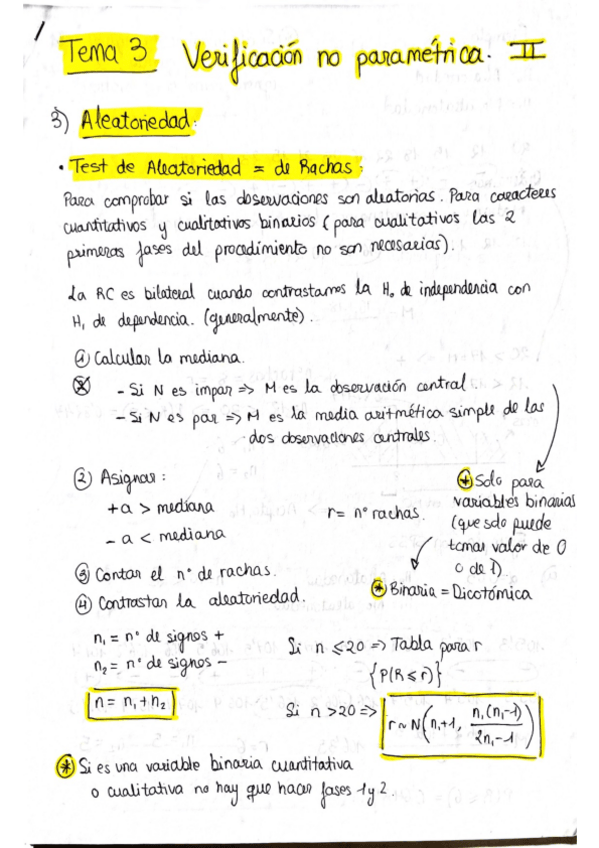 Tema 3 Verificación no paramétrica. II
3) Aleatoriedad:
• Test de Aleatoriedad = de Rachas:
Para comprobar si las observaciones son aleatorias. Para caracteres
cuantitativos y cualitativos binarios (para cualitativos las 2
primeras fases del procedimiento no son necesarias).
La RC es bilateral cuando contrastamos la H₀ de independencia con
H₁ de dependencia. (generalmente).
① Calcular la mediana.
- Si N es impar => M es la observación central.
- Si N es par => M es la media aritmética simple de las
dos observaciones centrales.
② Asignar:
+ a > mediana
- a < mediana
r = nº rachas.
* Solo para
variables binarias
(que solo puede
tomar valor de 0
o de 1)
* Binaria = Dicotómica
③ Contar el nº de rachas.
④ Contrastar la aleatoriedad.
n₁ = nº de signos +
n₂ = nº de signos -
n = n₁ + n₂
Si n ≤ 20 => Tabla para r
{P(R ≤ r)}
Si n > 20 => r ~ N(n₁+1, n₁(n₁-1)/2n₁-1)
* Si es una variable binaria cuantitativa
o cualitativa no hay que hacer fases 1 y 2.